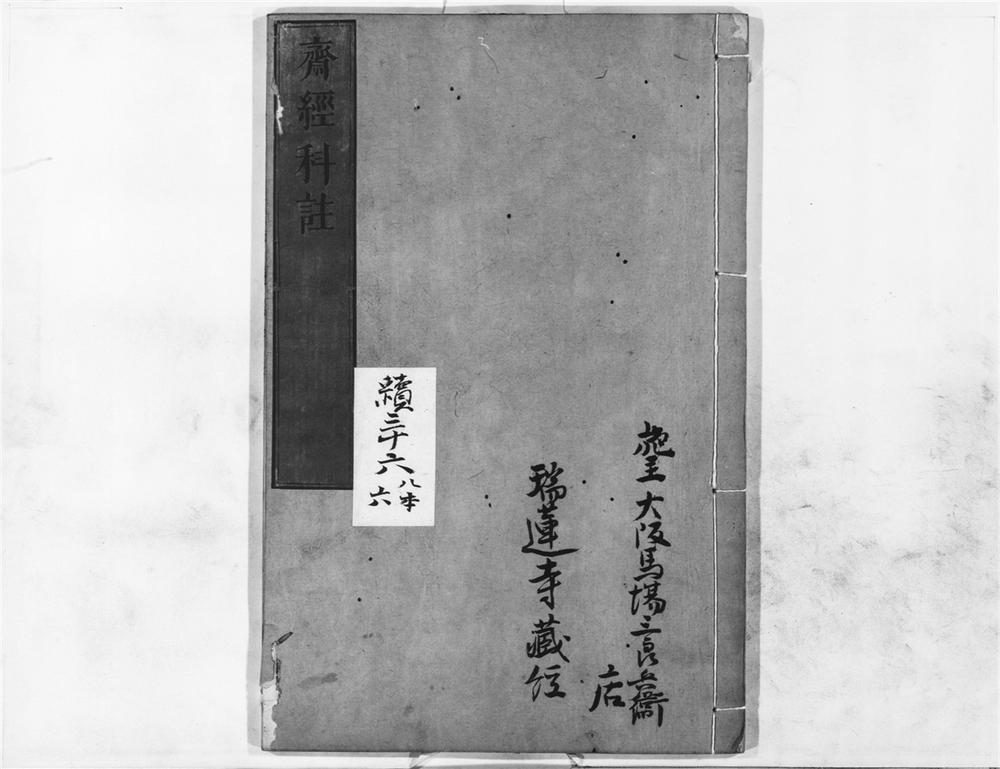 施主 大阪馬場三良兵衛
店
瑞蓮寺藏経
續三十六
八本
六
齋經科註